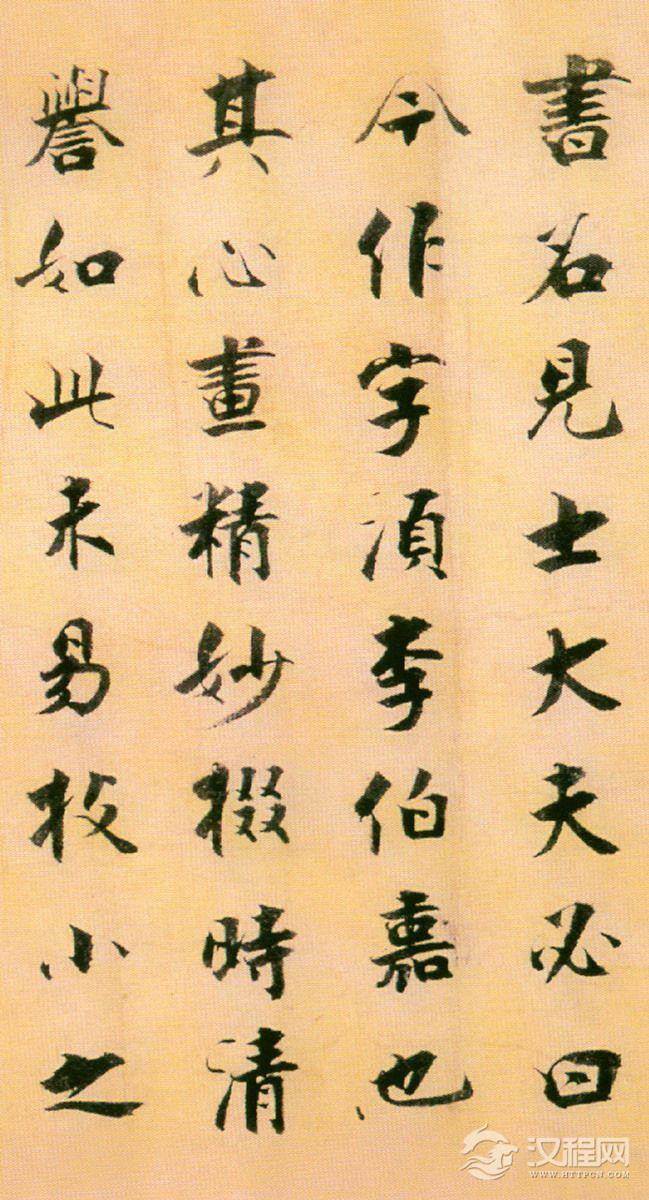 書名見士大夫必曰
今作字須李伯嘉也
其心畫精妙掇時清
譽如此未易技小之
汉程网
WWW.HTTPCN.COM